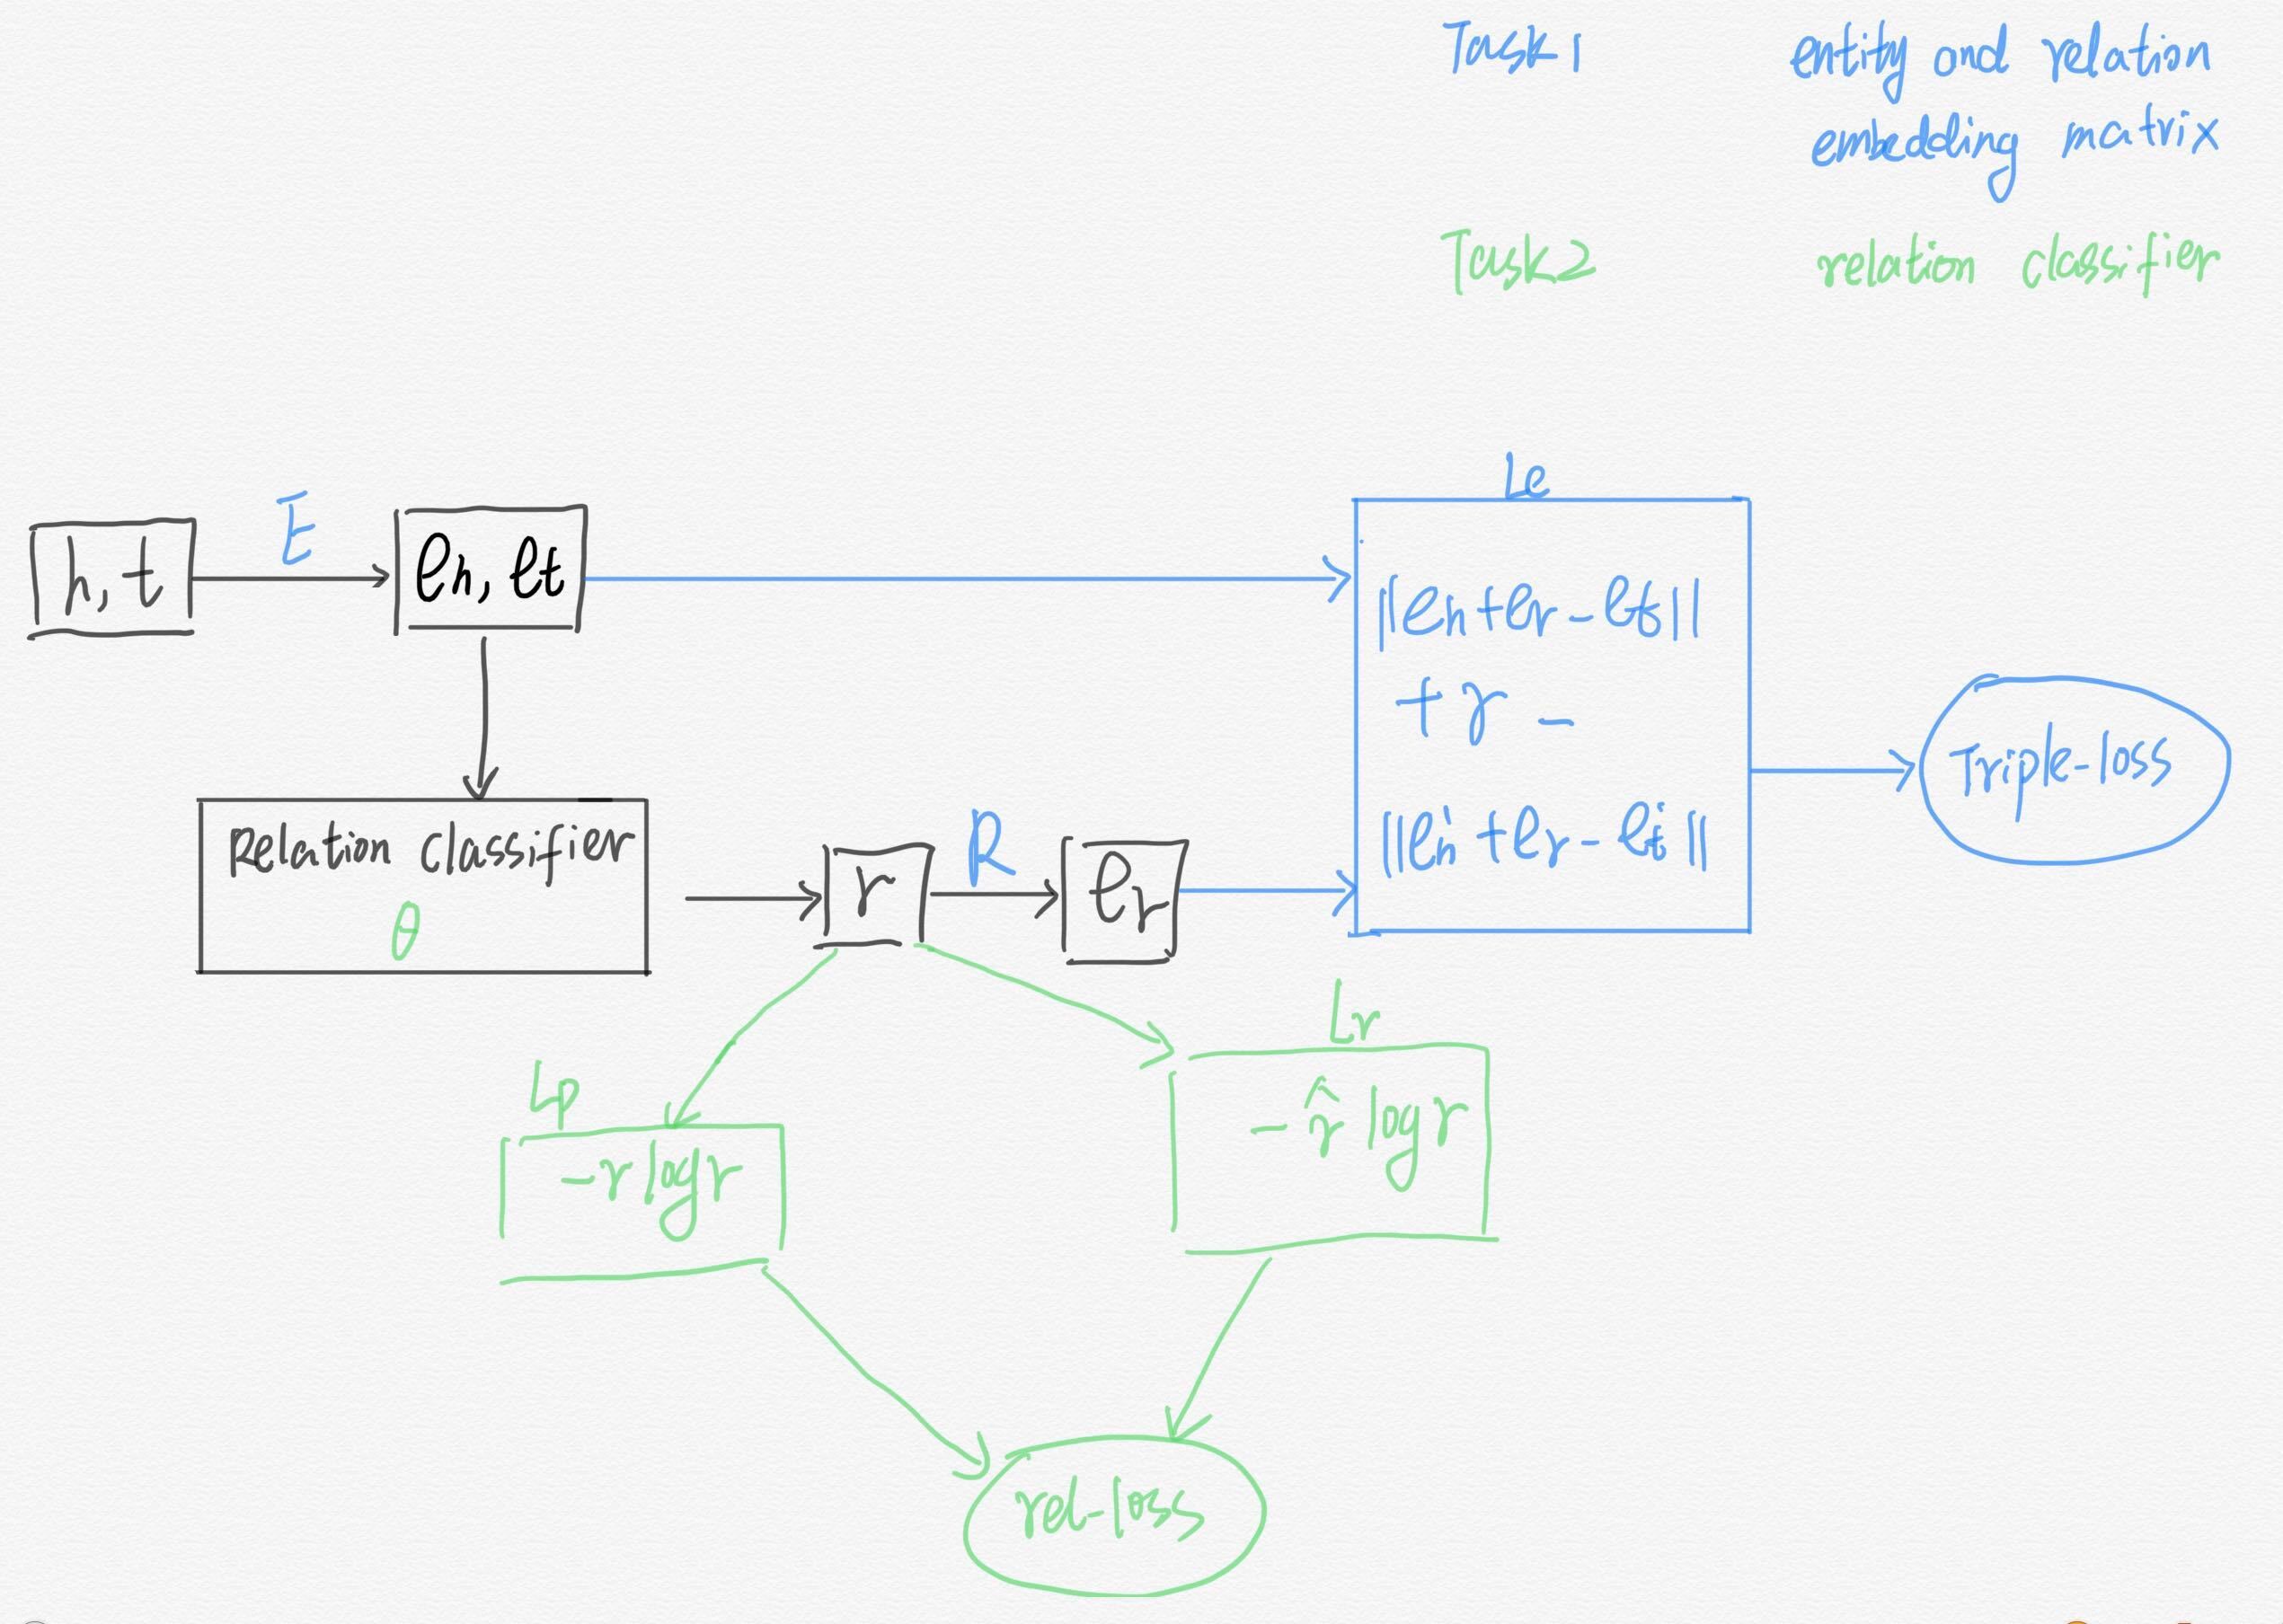 Task1 entity and relation
embedding matrix
Task2 relation classifier
Le
E
h, t
eh, et
||eh + er - et||
+ γ -
||eh' + er - et'||
Triple-loss
Relation classifier
θ
r
R
er
Lr
-r̂ log r
Lp
-r log r
rel-loss